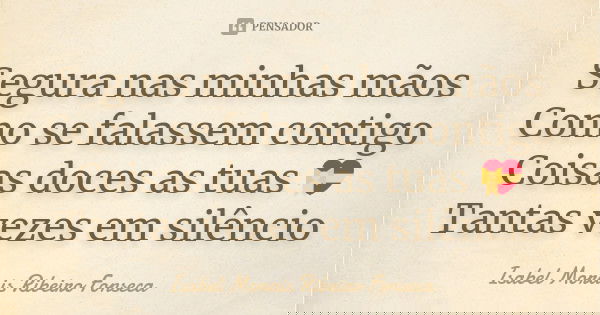 PENSADOR
Segura nas minhas mãos
Como se falassem contigo
💝Coisas doces as tuas ❤
Tantas vezes em silêncio
Isabel Morais Ribeiro Fonseca